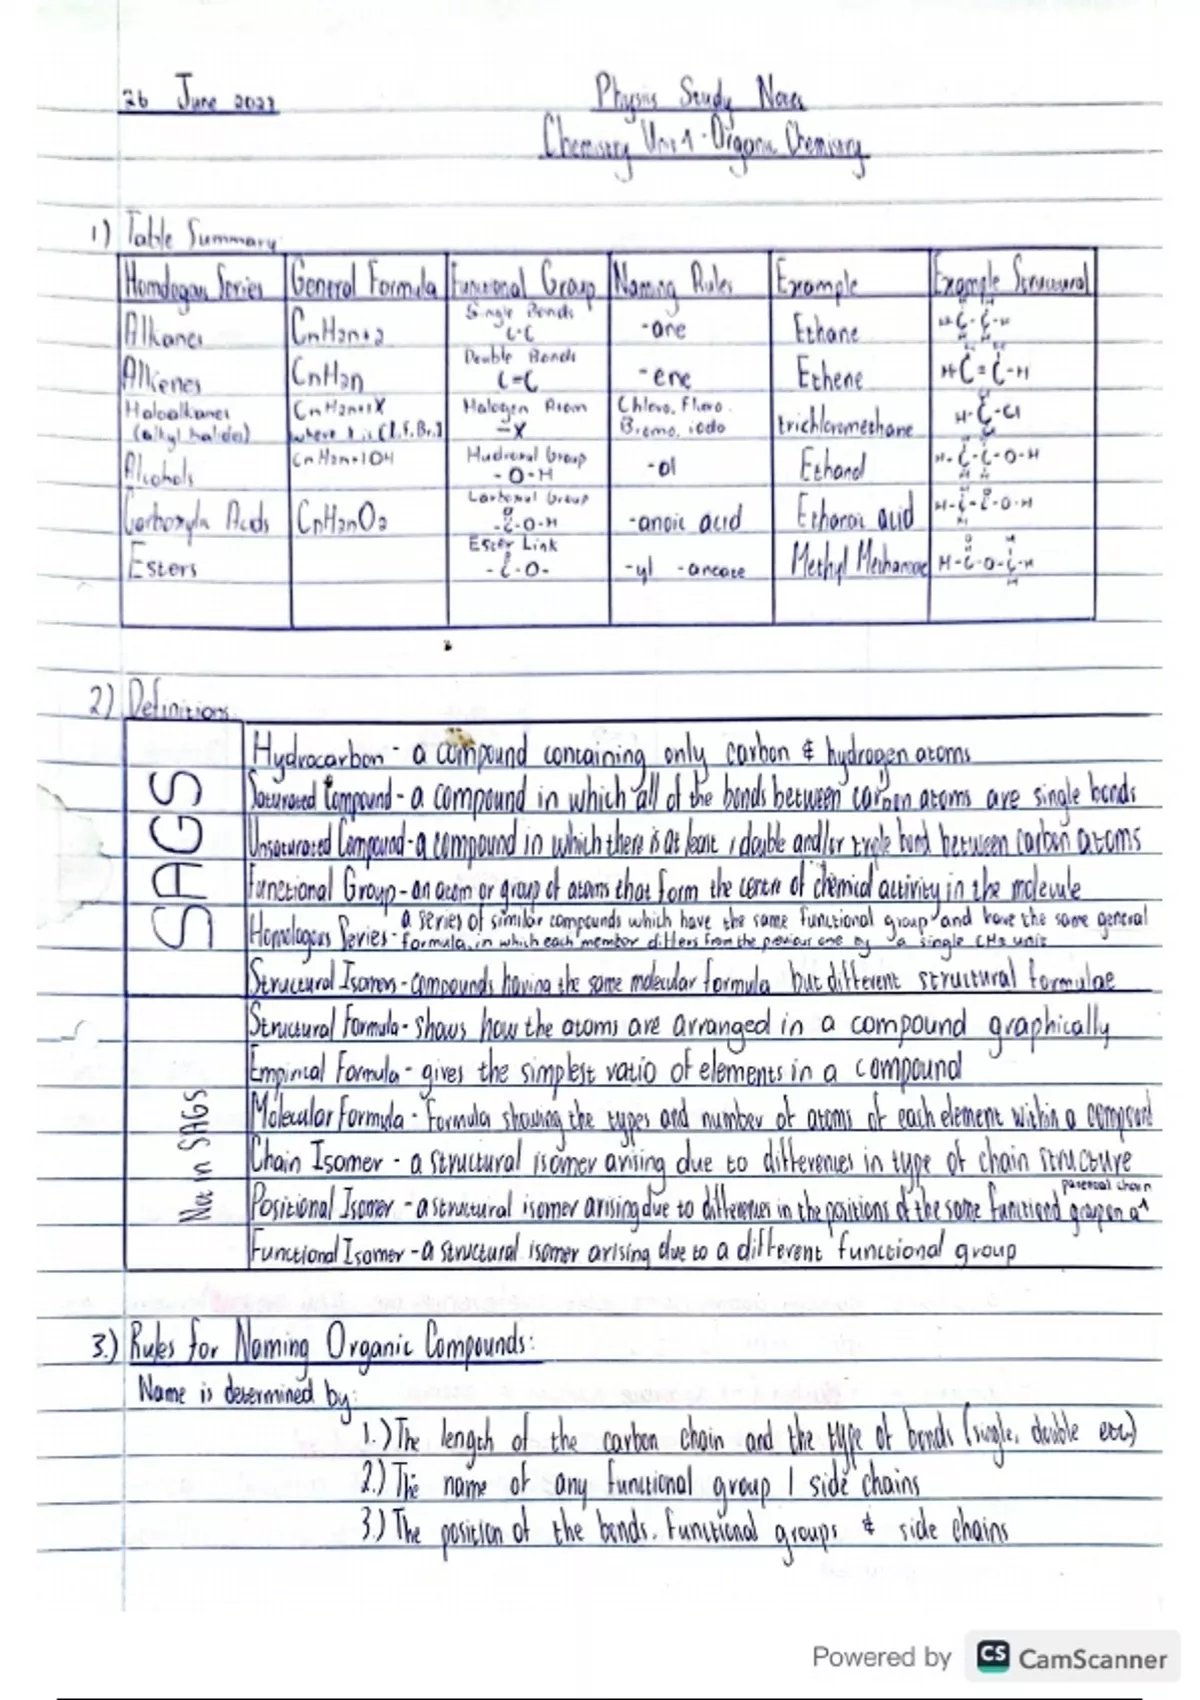 26 June 2023
Physis Study Notes
Chemistry Unit 1 - Organic Chemistry
1) Table Summary
Homologous Series General Formula Functional Group Naming Rules Example Example Structural
Alkanes CnH2n+2 Single Bonds C-C -ane Ethane
Alkenes CnH2n Double Bonds C=C -ene Ethene
Haloalkanes (alkyl halides) CnH2n+1X where X is Cl, F, Br, I Halogen Atom -X Chloro, Fluro, Bromo, iodo trichloromethane
Alcohols CnH2n+1OH Hydroxyl Group -O-H -ol Ethanol
Carboxylic Acids CnH2nO2 Carboxyl Group -C-O-H -anoic acid Ethanoic acid
Esters Ester Link -C-O- -yl -anoate Methyl Methanoate
2) Definitions
SAGS
Hydrocarbon - a compound containing only carbon & hydrogen atoms
Saturated Compound - a compound in which all of the bonds between carbon atoms are single bonds
Unsaturated Compound - a compound in which there is at least 1 double and/or triple bond between carbon atoms
Functional Group - an atom or group of atoms that form the centre of chemical activity in the molecule
Homologous Series - a series of similar compounds which have the same functional group and have the same general
formula, in which each member differs from the previous one by a single CH2 unit
Structural Isomers - compounds having the same molecular formula but different structural formulae
Not in SAGS
Structural Formula - shows how the atoms are arranged in a compound graphically
Empirical Formula - gives the simplest ratio of elements in a compound
Molecular Formula - Formula showing the types and number of atoms of each element within a compound
Chain Isomer - a structural isomer arising due to differences in type of chain structure
Positional Isomer - a structural isomer arising due to differences in the positions of the same functional group on a parental chain
Functional Isomer - a structural isomer arising due to a different functional group
3.) Rules for Naming Organic Compounds:
Name is determined by:
1.) The length of the carbon chain and the type of bonds (single, double etc)
2.) The name of any functional group / side chains
3.) The position of the bonds, functional groups & side chains
Powered by CS CamScanner